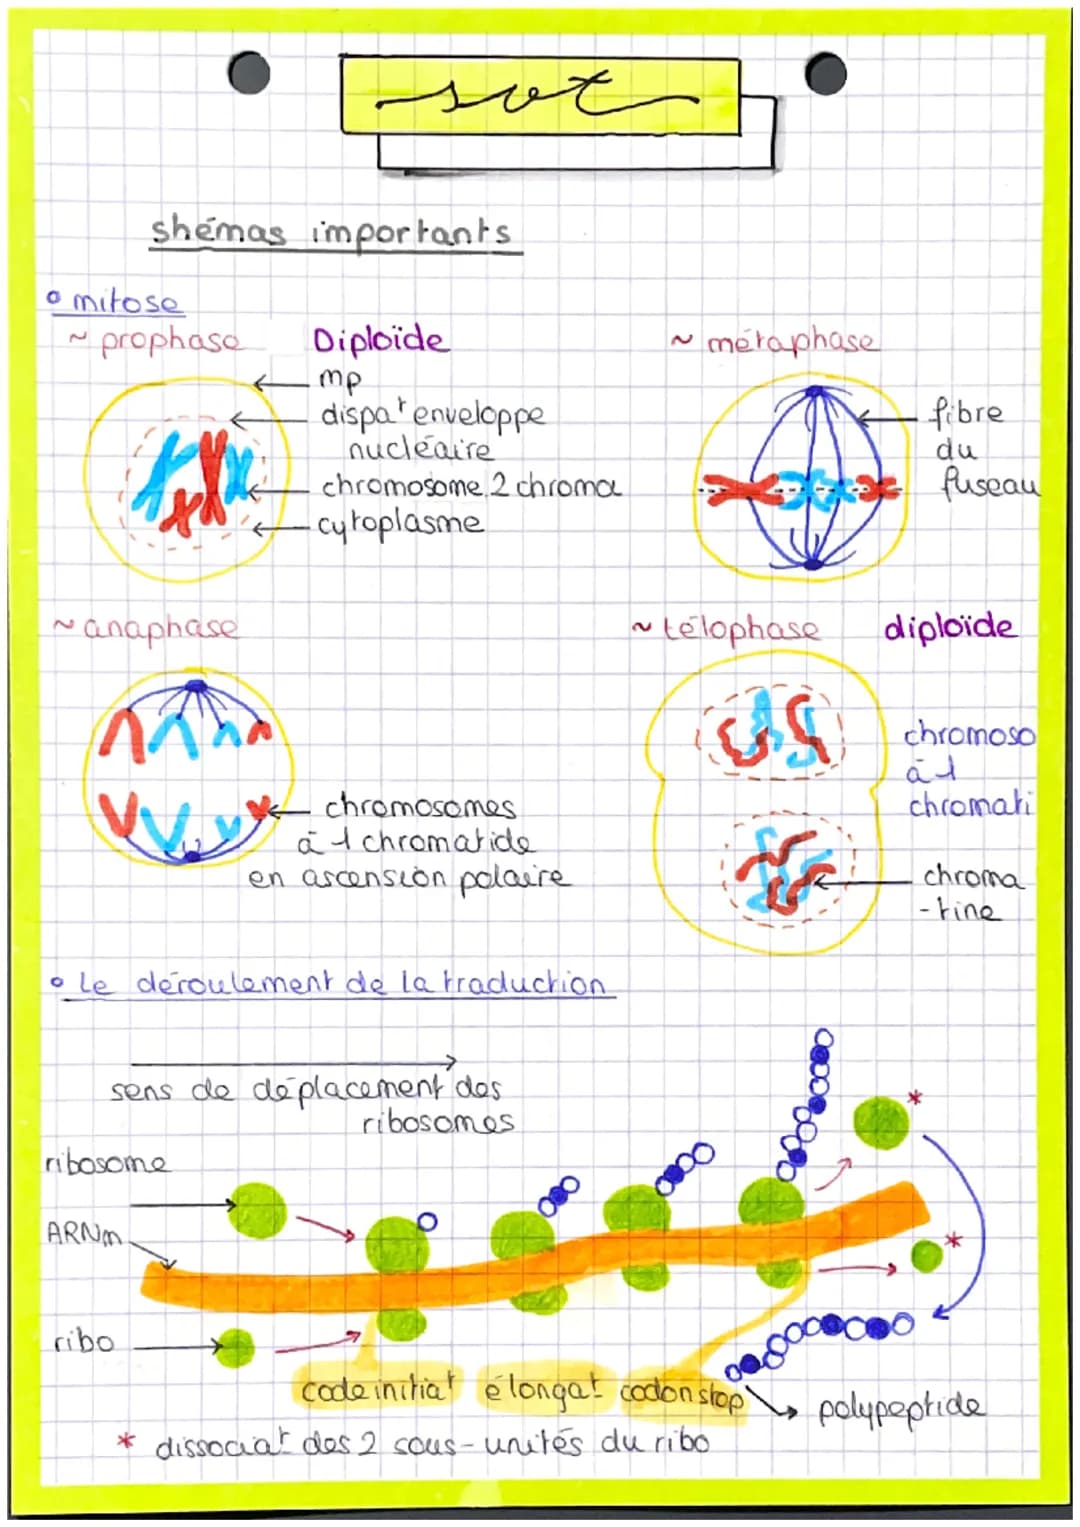 svt
shémas importants
° mitose
~ prophase Diploïde
mp
dispat enveloppe
nucléaire
chromosome 2 chroma
cytoplasme
~ métaphase
fibre
du
fuseau
~ anaphase
chromosomes
à 1 chromatide
en ascension polaire
~ télophase diploïde
chromoso
à 1
chromati
chroma
-tine
° Le déroulement de la traduction
sens de déplacement des
ribosomes
ribosome
ARNm
ribo
*
*
code initiat élongat codon stop
polypeptide
* dissociat des 2 sous-unités du ribo